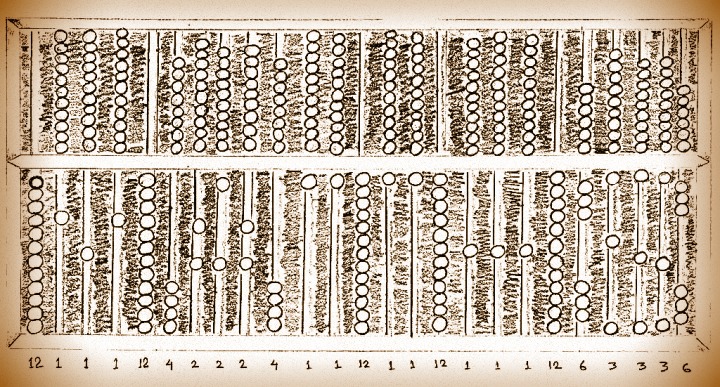 12 1 1 1 12 4 2 2 2 4 1 1 12 1 1 12 1 1 1 12 6 3 3 3 6